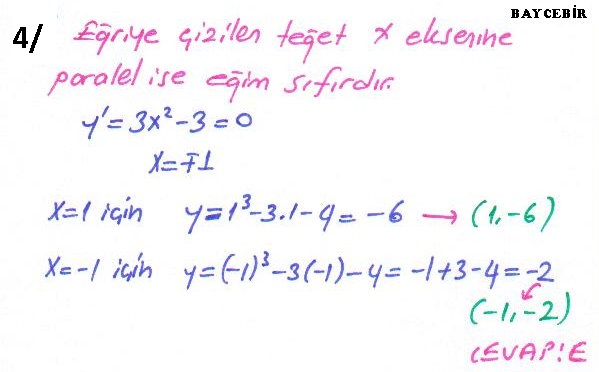 BAYCEBİR
4/ Eğriye çizilen teğet x eksenine
paralel ise eğim sıfırdır.
y'=3x²-3=0
x=∓1
x=1 için y=1³-3.1-4=-6 → (1,-6)
x=-1 için y=(-1)³-3(-1)-4=-1+3-4=-2
(-1,-2)
CEVAP:E